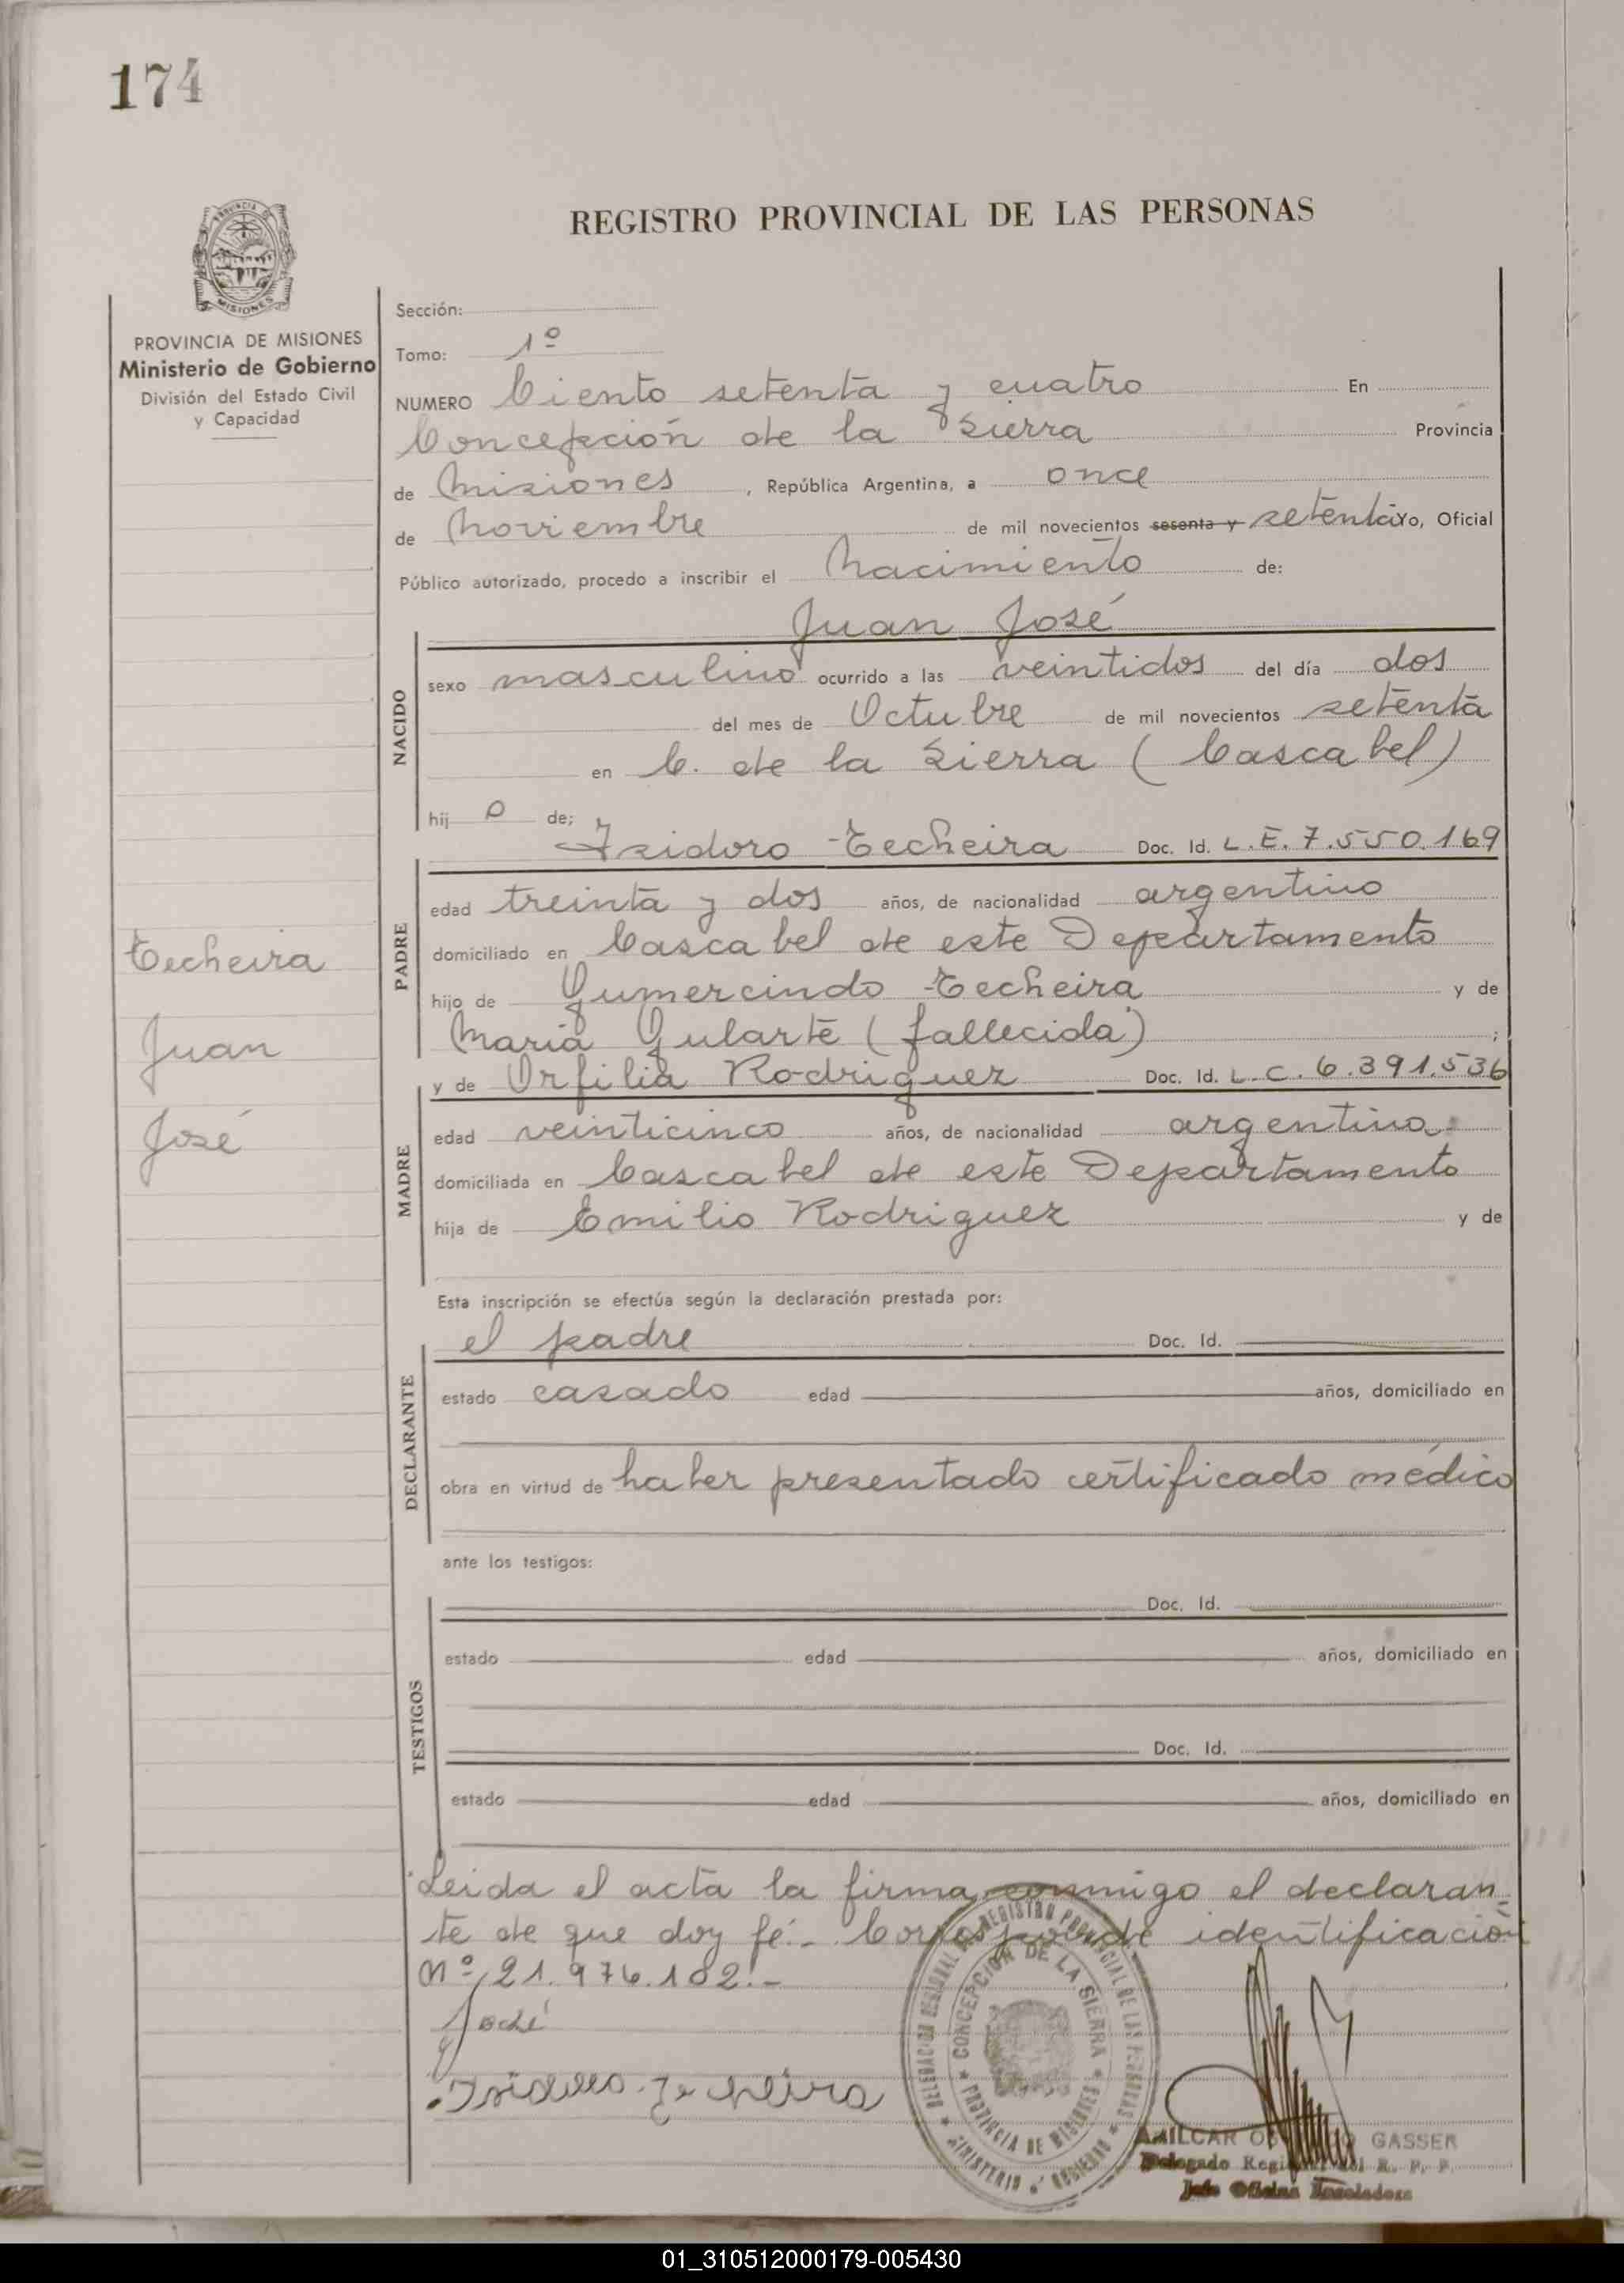 174
REGISTRO PROVINCIAL DE LAS PERSONAS
PROVINCIA DE MISIONES
Ministerio de Gobierno
División del Estado Civil
y Capacidad
Sección:
Tomo: 1º
NUMERO Ciento setenta y cuatro En
Concepción de la Sierra Provincia
de Misiones, República Argentina, a once
de Noviembre de mil novecientos sesenta y setenta Yo, Oficial
Público autorizado, procedo a inscribir el Nacimiento de:
Juan José
NACIDO
sexo masculino ocurrido a las veintidos del día dos
del mes de Octubre de mil novecientos setenta
en C. de la Sierra (Cascabel)
hij o de;
Isidoro Techeira Doc. Id. L.E. 7.550.169
PADRE
edad treinta y dos años, de nacionalidad argentino
domiciliado en Cascabel de este Departamento
hijo de Gumercindo Techeira y de
Maria Gularte (fallecida) ;
y de Orfilia Rodriguez Doc. Id. L.C. 6.391.536
MADRE
edad veinticinco años, de nacionalidad argentina
domiciliada en Cascabel de este Departamento
hija de Emilio Rodriguez y de
Techeira
Juan
José
Esta inscripción se efectúa según la declaración prestada por:
el padre Doc. Id.
DECLARANTE
estado casado edad años, domiciliado en
obra en virtud de haber presentado certificado médico
ante los testigos:
TESTIGOS
Doc. Id.
estado edad años, domiciliado en
Doc. Id.
estado edad años, domiciliado en
Leida el acta la firma conmigo el declaran-
te de que doy fé.- Corresponde identificación
Nº 21.976.182.-
Isidoro Techeira
REGISTRO PROVINCIAL DE LAS PERSONAS
CONCEPCION DE LA SIERRA
PROVINCIA DE MISIONES
AMILCAR GASSER
Delegado Regional del R. P. P.
Jefe Oficina Enroladora
01_310512000179-005430